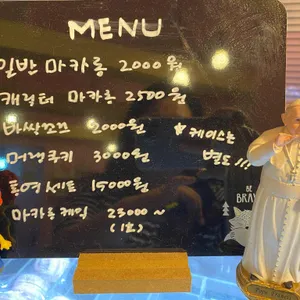 MENU
일반 마카롱 2000원
캐릭터 마카롱 2500원
바싹꼬끄 2000원
★ 케이스는
머랭쿠키 3000원
별도!!
세트 15000원
BE
BRAV
마카롱케익 23000~
(1호)